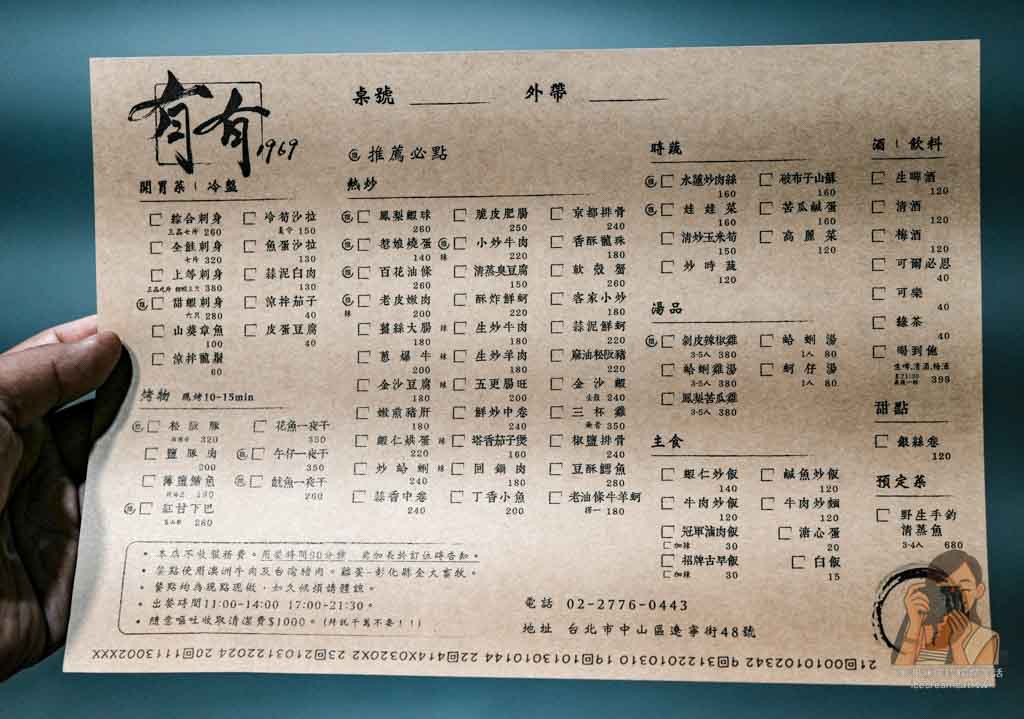 有有 1969
桌號
外帶
推薦必點
開胃菜 | 冷盤
綜合刺身
三品七片 260
全鮭刺身
七片 320
上等刺身
380
甜蝦刺身
六只 280
山葵章魚
100
涼拌龍鬚
60
冷筍沙拉
夏令 150
魚蛋沙拉
130
蒜泥白肉
130
涼拌茄子
40
皮蛋豆腐
40
烤物 現烤10-15min
松阪豚
320
鹽豚肉
200
薄鹽鯖魚
180
紅甘下巴
260
花魚一夜干
350
午仔一夜干
350
魷魚一夜干
260
熱炒
鳳梨蝦球
260
老娘燒蛋
140
百花油條
260
老皮嫩肉
辣 200
薑絲大腸
180
蔥爆牛
200
金沙豆腐
180
嫩煎豬肝
180
蝦仁烘蛋
220
炒蛤蜊
240
蒜香中卷
240
脆皮肥腸
250
小炒牛肉
辣 220
清蒸臭豆腐
150
酥炸鮮蚵
220
辣 生炒牛肉
180
辣 生炒羊肉
180
辣 五更腸旺
200
鮮炒中卷
240
辣 塔香茄子煲
160
辣 回鍋肉
180
丁香小魚
200
京都排骨
240
香酥龍珠
180
軟殼蟹
280
客家小炒
180
蒜泥鮮蚵
220
麻油松阪豬
220
金沙蝦
240
三杯雞
350
椒鹽排骨
240
豆酥鱈魚
280
老油條牛羊蚵
擇一 180
時蔬
水蓮炒肉絲
160
娃娃菜
160
清炒玉米筍
150
炒時蔬
120
破布子山蘇
160
苦瓜鹹蛋
130
高麗菜
120
湯品
剝皮辣椒雞
3-5人 380
蛤蜊雞湯
3-5人 380
鳳梨苦瓜雞
3-5人 380
蛤蜊湯
1人 80
蚵仔湯
1人 80
主食
蝦仁炒飯
140
牛肉炒飯
120
冠軍滷肉飯
加辣 30
招牌古早飯
加辣 30
鹹魚炒飯
120
牛肉炒麵
120
溏心蛋
20
白飯
15
酒 | 飲料
生啤酒
120
清酒
120
梅酒
120
可爾必思
40
可樂
40
綠茶
40
喝到飽
生啤,清酒,梅酒
399
甜點
銀絲卷
120
預定菜
野生手釣
清蒸魚
3-4人 680
• 本店不收服務費。用餐時間90分鐘
• 餐點使用澳洲牛肉及台灣豬肉。雞蛋-彰化縣全大畜牧。
• 餐點均為現點現做,如久候煩請體諒。
• 出餐時間11:00-14:00 17:00-21:30。
• 隨意嘔吐收取清潔費$1000。(拜託千萬不要!!!)
電話 02-2776-0443
地址 台北市中山區遼寧街48號